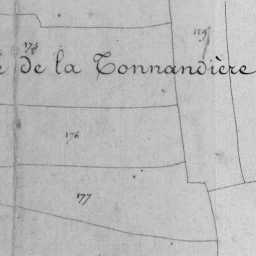 179
178
e de la Tonnandière
176
177